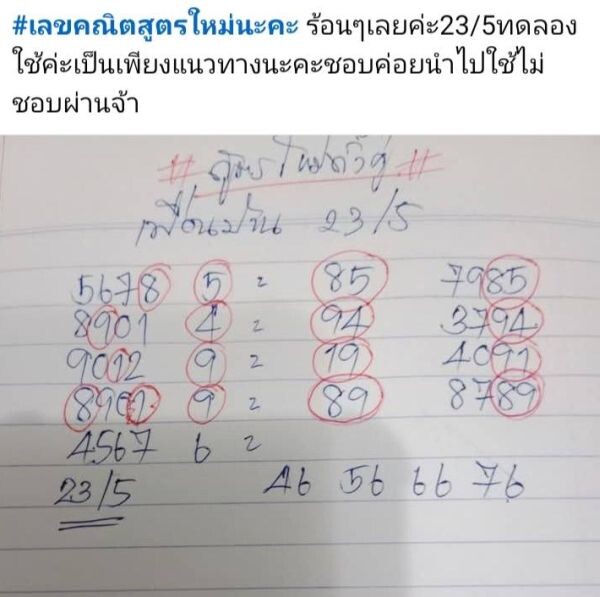 #เลขคณิตสูตรใหม่นะคะ ร้อนๆเลยค่ะ23/5ทดลอง
ใช้ค่ะเป็นเพียงแนวทางนะคะชอบค่อยนำไปใช้ไม่
ชอบผ่านจ้า
# สูตรใหม่ตัวคู่ #
เพื่อนบ้าน 23/5
5678 5 = 85 7985
8901 4 = 94 3794
9012 9 = 19 4091
8901 9 = 89 8789
4567 6 =
23/5 46 56 66 76